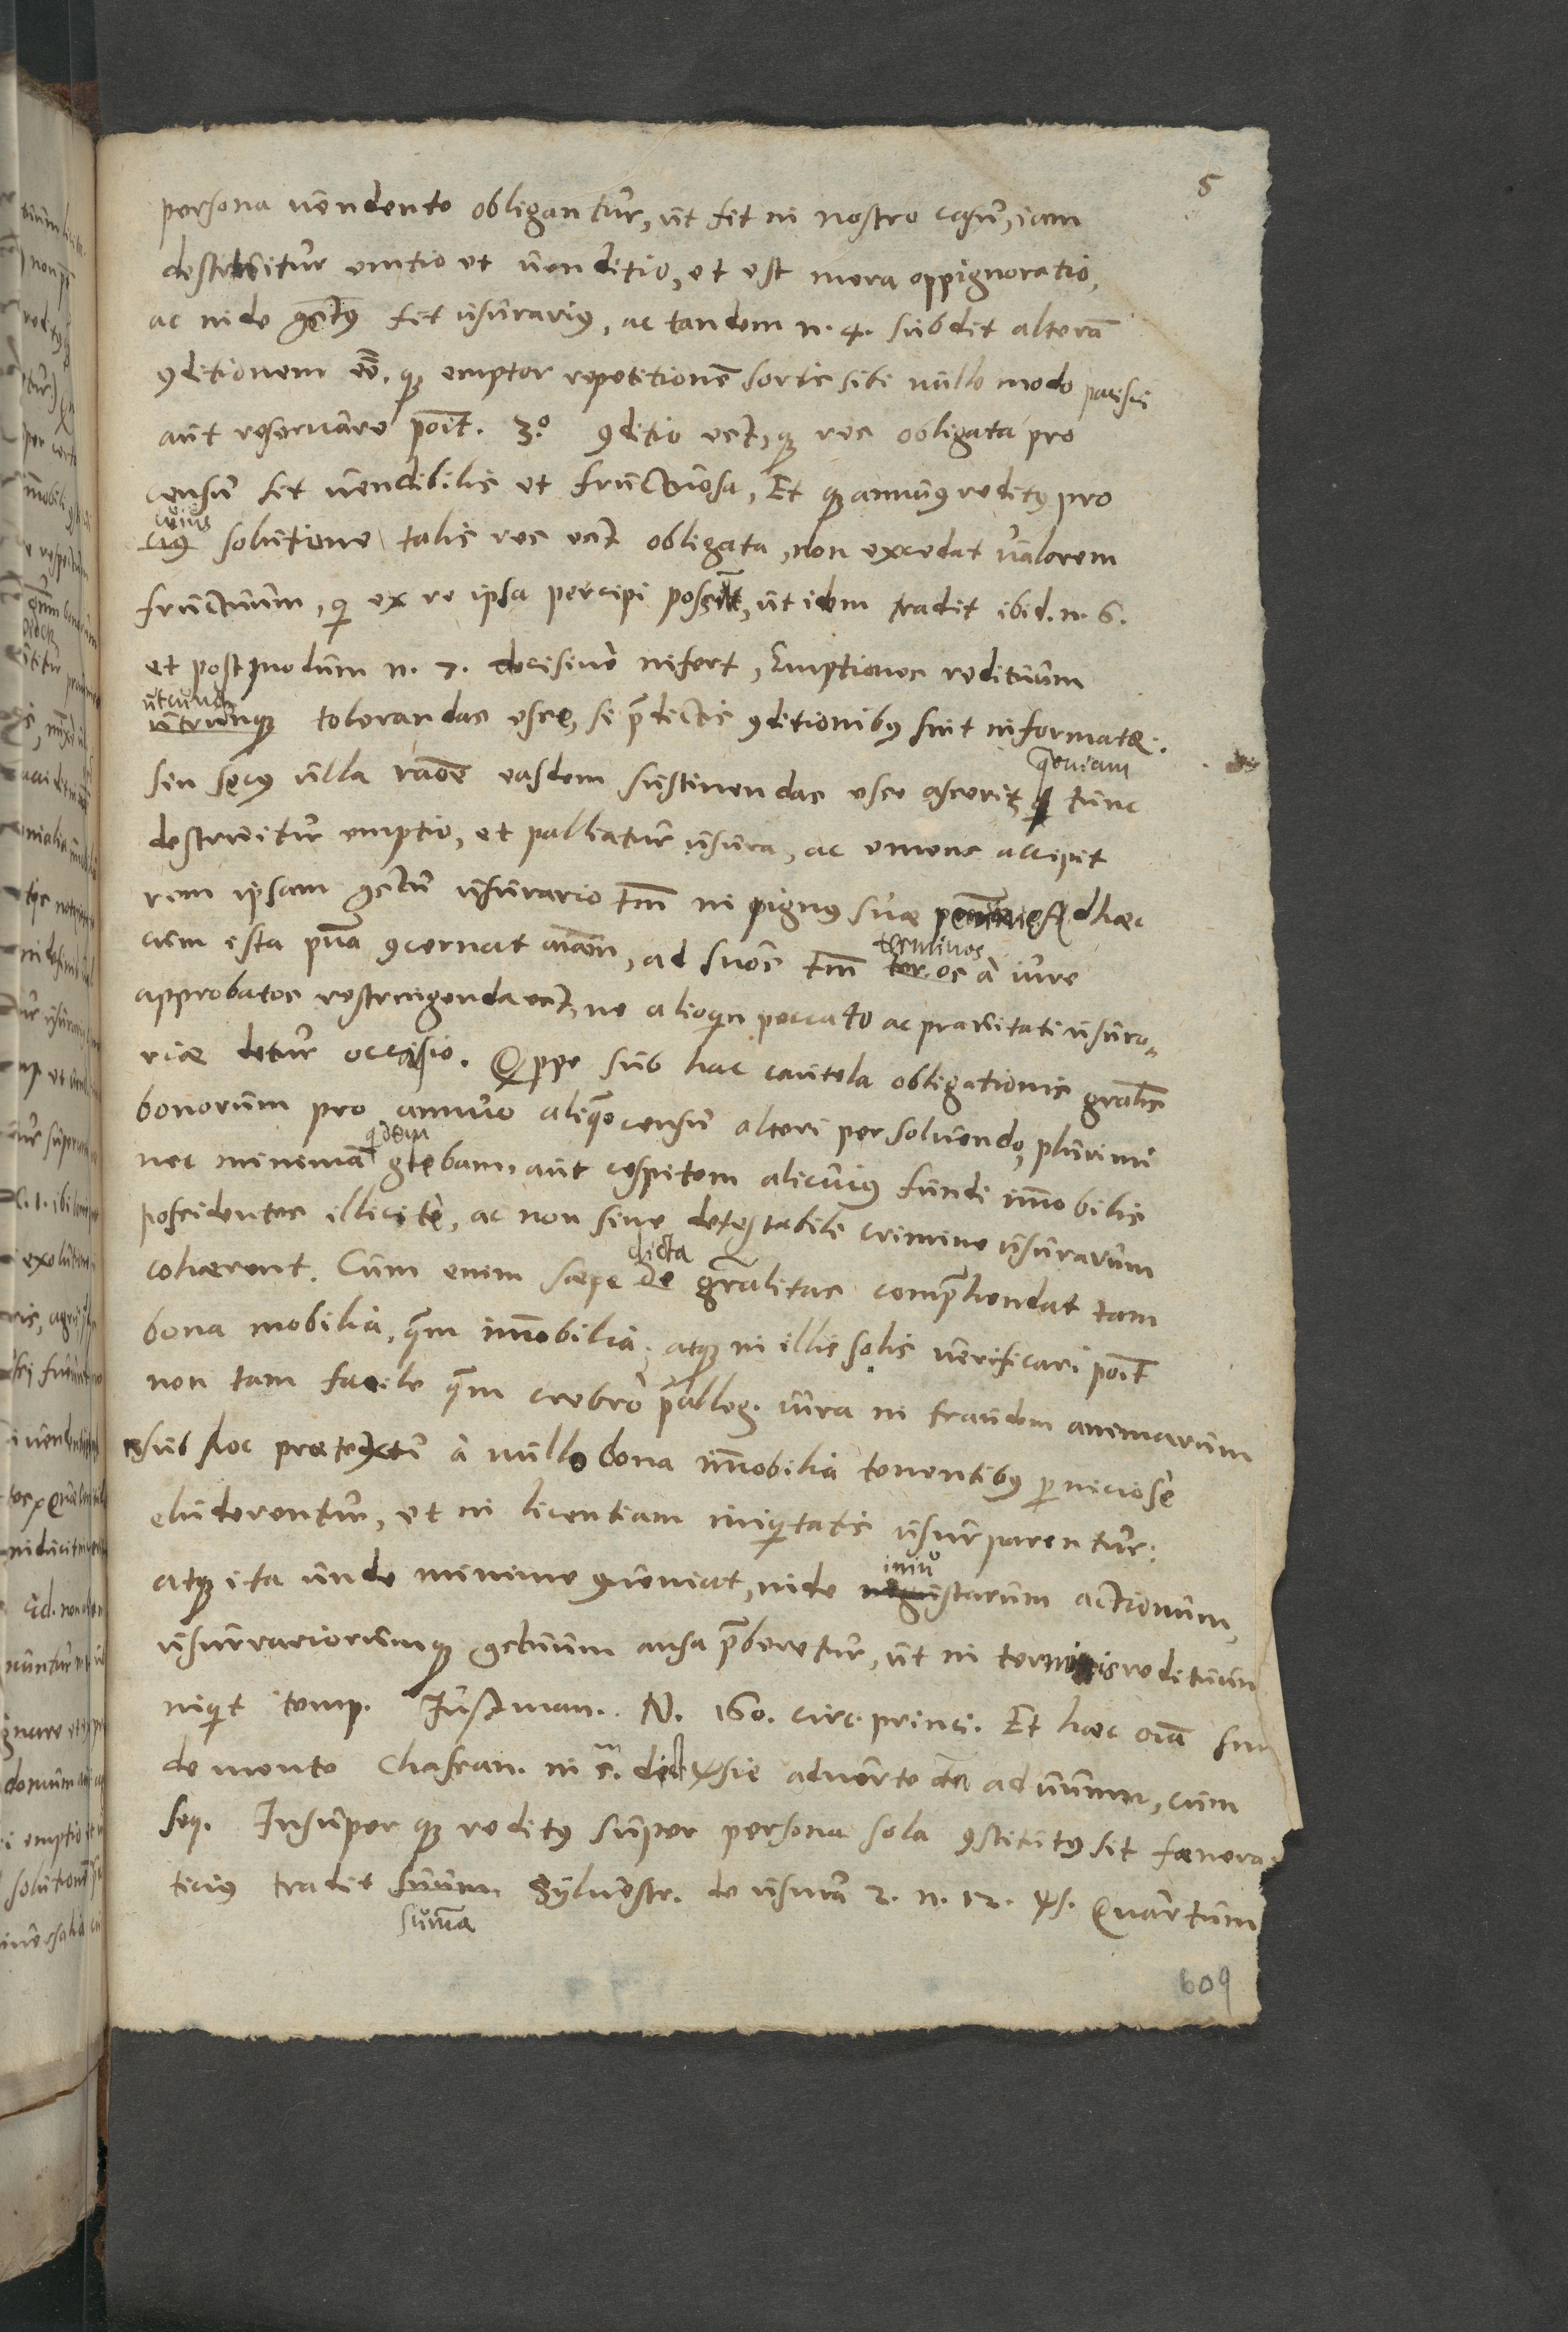 5
persona uendente obligantur, ut fit in nostro casu, iam
destruitur emtio et uenditio, et est mera oppignoratio,
ac inde ꝯctꝰ fit usurariꝰ, ac tandem n. 4. subdit alterā
ꝯditionem eē̄. qꝫ emptor repetitionē̄ sortis sibi nullo modo pacisci
aut reseruare poīt. 3.º ꝯditio est, qꝫ res obligata pro
censu sit uendibilis et fructuosa, Et qꝫ annuꝰ reditꝰ pro
cuius
ciꝰ solutione talis res est obligata, non excedat ualorem
fructuum, qi ex re ipsa percipi possīt, ut idem tradit ibid. n. 6.
et postmodum n. 7. decisiue infert, Emptiones redituum
utcunqꝫ
untrunqꝫ tolerandas esse, si p̄dictis ꝯditionibꝰ sint informatæ.
quoniam
sin secꝰ ulla raōe easdem sustinendas esse asserit, q tunc
destruitur emptio, et palliatur usura, ac emens accipit
rem ipsam ꝯctu usurario tm̄ in pignꝰ suæ pecuniæ Ad hæc
terminos
cum ista pn̄a ꝯcernat aīam, ad suos tm̄ ter. os a iure
approbatos restringenda est, ne alioqn peccato ac prauitati usura-
riæ detur occasio. Qippe sub hac cautela obligationis gn̄alis
bonorum pro annuo aliquo censu alteri persoluendo, plurimi
quidem
nec minimā glebam, aut cespitem alicuius fundi im̄obilis
possidentes illicite, ac non sine detestabili crimine usurarum
dicta
cohærent. Cum enim sæpe de gn̄alitas comp̄hendat tam
bona mobilia, quam im̄obilia, atqꝫ in illis solis uerificari poīt
non tam facile quam crebro p̄alleg. iura in fraudem animarum
sub hoc prætextu a nullo bona im̄obilia tenentibꝰ perniciose
eluderentur, et in licentiam iniqitatis usurparentur:
iniu
atqꝫ ita unde minime ꝯueniat, inde negustarum actionum,
usurrariorumqꝫ ꝯctuum ansa p̄beretur, ut in terminis redituum
inqit temp. Justman. N. 160. circ. princi. Et hæc oīa sun
de mente Chassan. in c. de aduerte ad unum, cum
seq. Insuper qꝫ reditꝰ super persona sola ꝯstitutꝰ sit fœnera-
ticiꝰ tradit suum Syluestr. de usura 2. n. 12. ꝟs. Quartum
suma
609